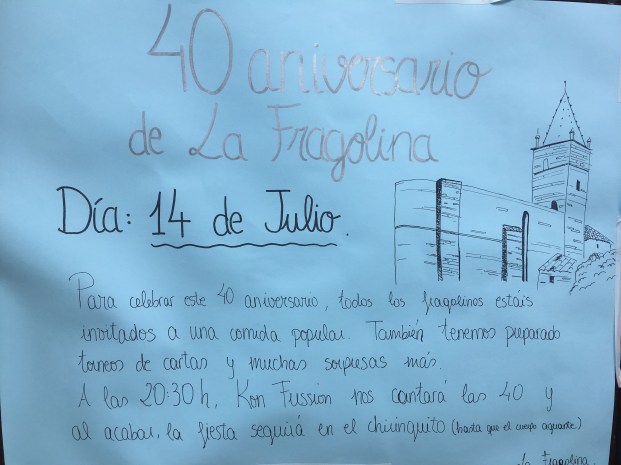 40 aniversario
de La Fragolina
Día: 14 de Julio.
Para celebrar este 40 aniversario, todos los fragolinos estáis
invitados a una comida popular. También tenemos preparado
torneos de cartas y muchas sorpresas más.
A las 20:30 h, Kon Fussion nos cantará las 40 y
al acabar, la fiesta seguirá en el chiringuito (hasta que el cuerpo aguante)
La Fragolina